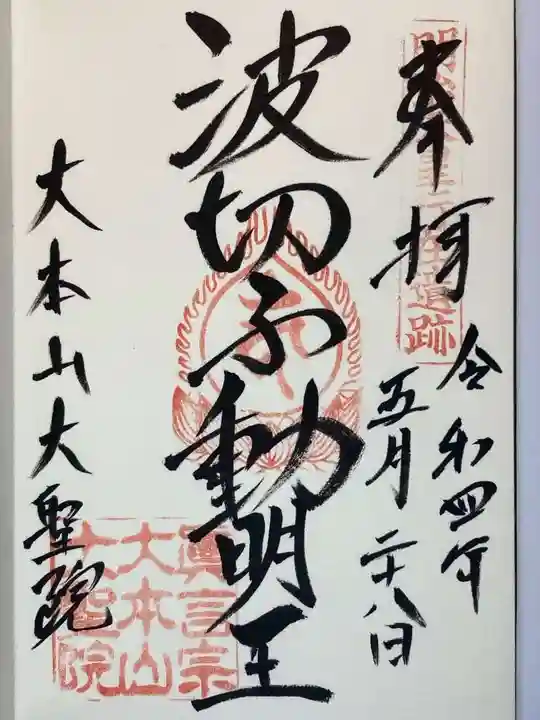 奉拝
令和四年
五月二十八日
波切不動明王
大本山大聖院
遺跡
真言宗
大本山
大聖院